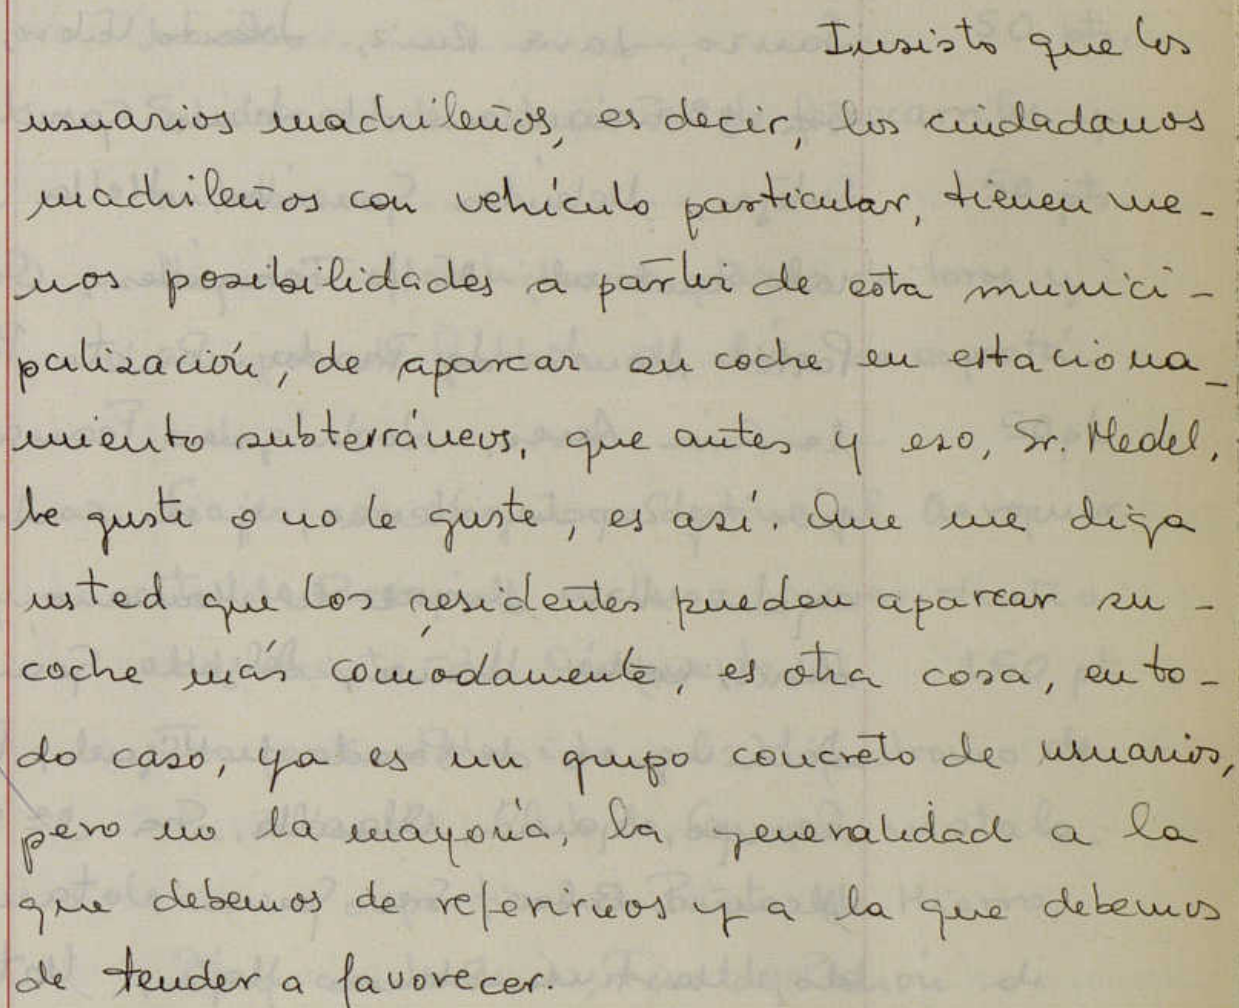 Insisto que los
usuarios madrileños, es decir, los ciudadanos
madrileños con vehículo particular, tienen me-
nos posibilidades a partir de esta munici-
palización, de aparcar su coche en estaciona-
miento subterráneos, que antes y eso, Sr. Medel,
le guste o no le guste, es así. Que me diga
usted que los residentes pueden aparcar su -
coche más comodamente, es otra cosa, en to-
do caso, ya es un grupo concreto de usuarios,
pero no la mayoría, la generalidad a la
que debemos de referirnos y a la que debemos
de tender a favorecer.